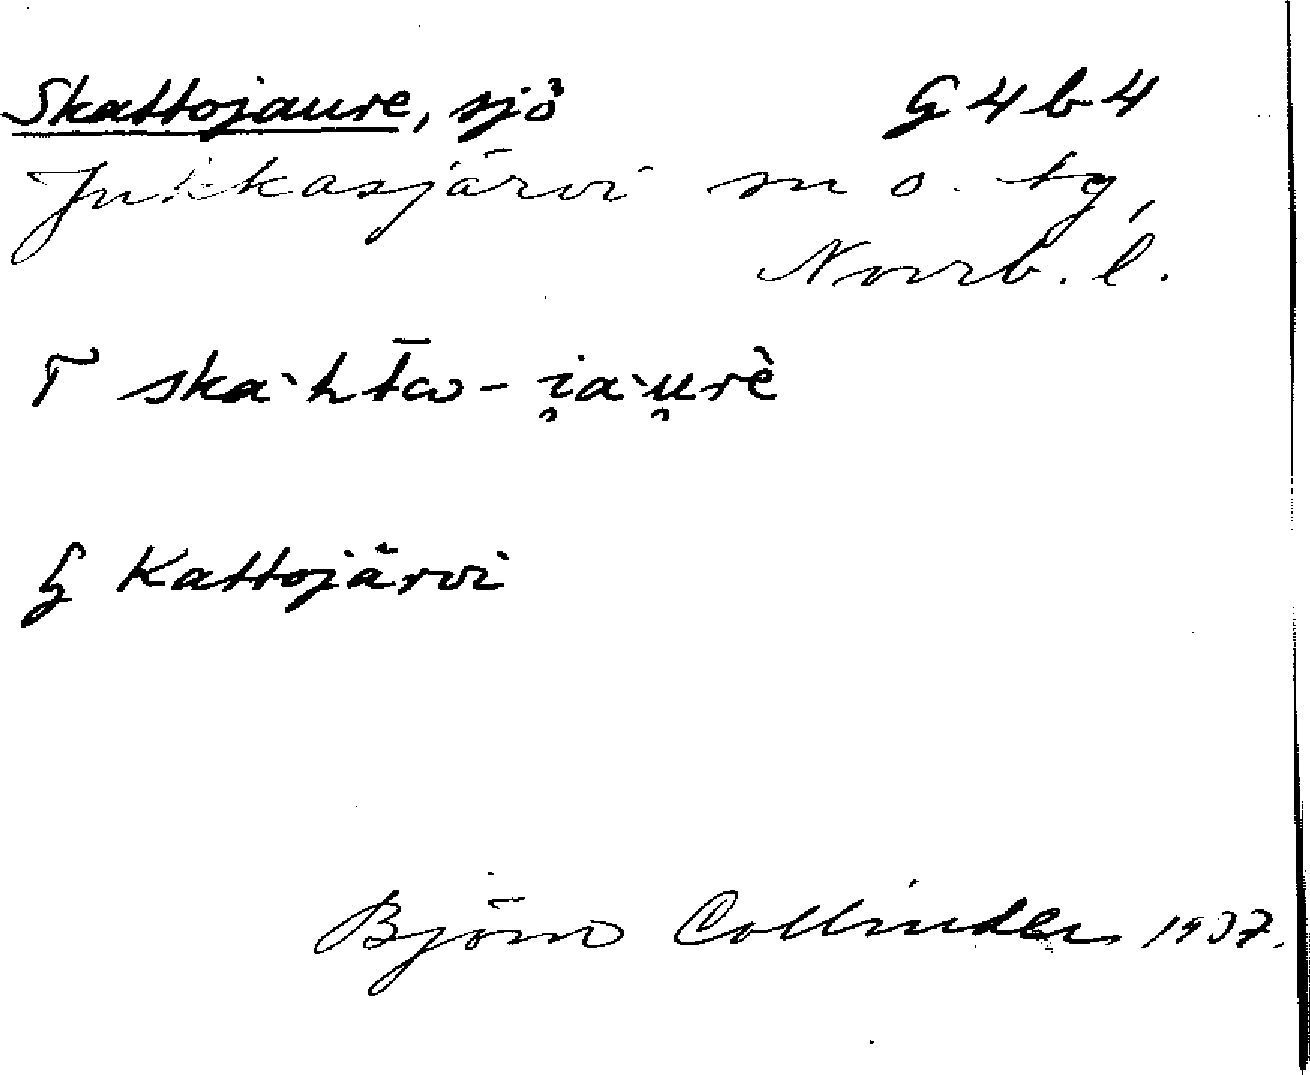 Skattojaure, sjö G4b4
Jukkasjärvi sn o. tg,
Norrb. l.
T ska·ht̄ω- i̯a·u̯rè
G Kattojärvi
Björn Collinder 1937.